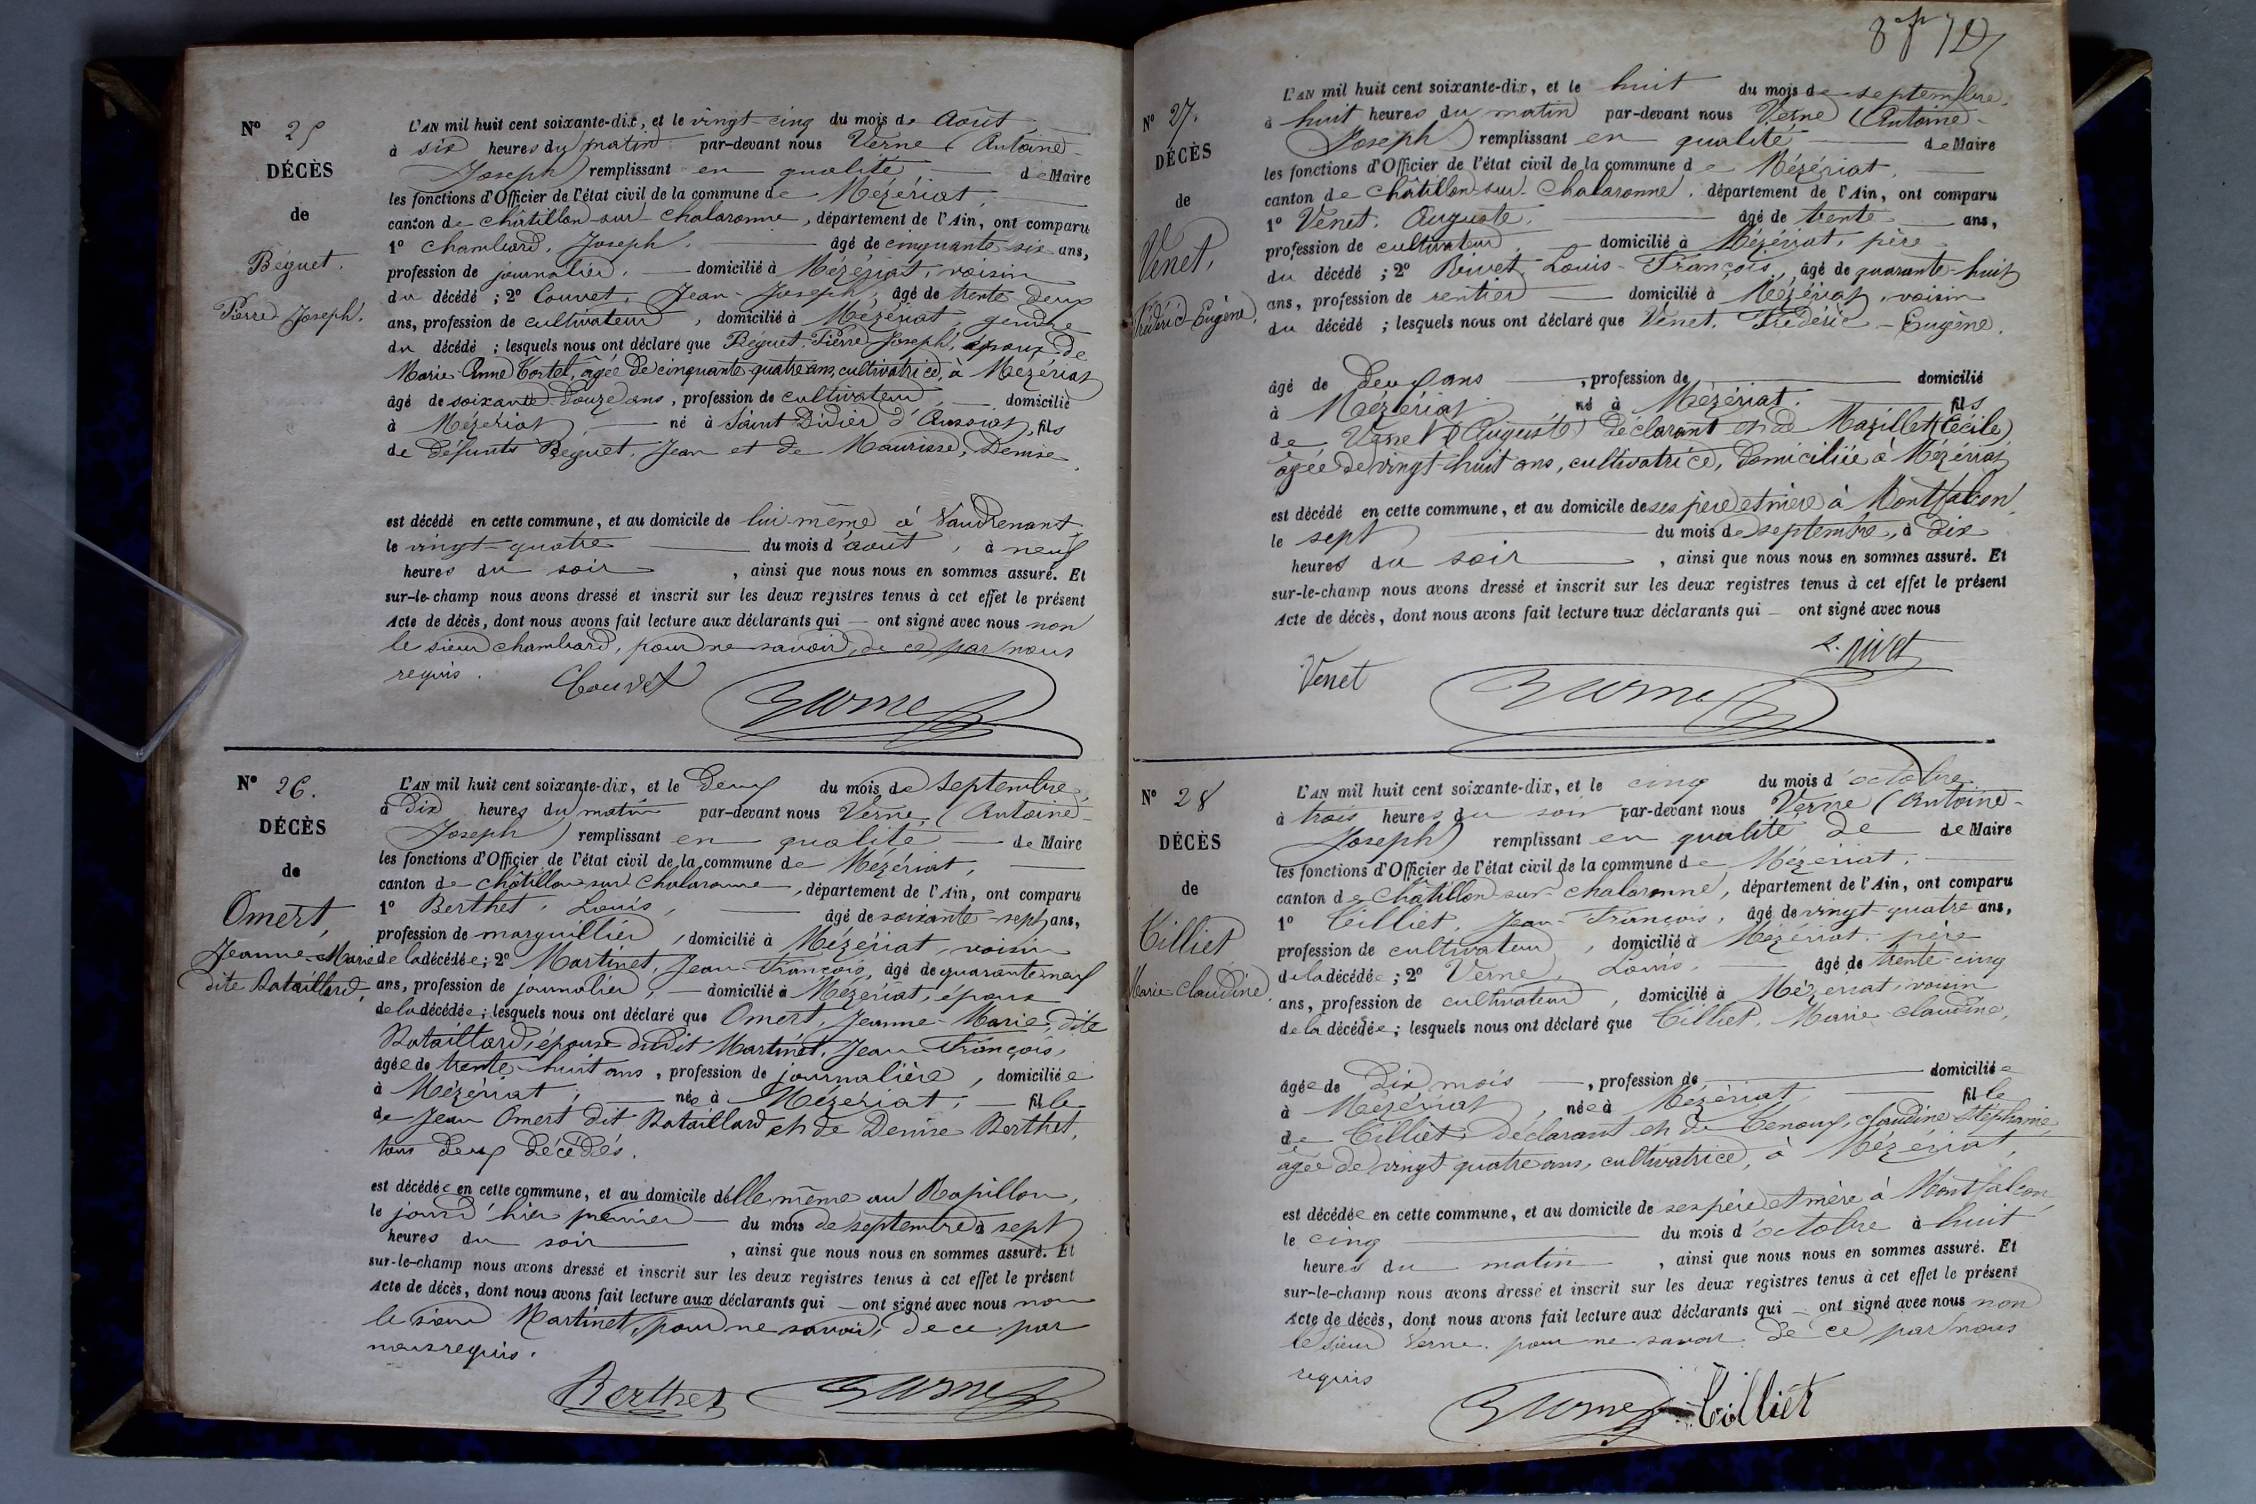 N° 25
DÉCÈS
de
Béguet.
Pierre Joseph.
L'AN mil huit cent soixante-dix, et le vingt-cinq du mois de Août
à six heures du matin par-devant nous Verne (Antoine-
Joseph) remplissant en qualité de Maire
les fonctions d'Officier de l'état civil de la commune de Mézériat,
canton de Châtillon-sur-Chalaronne, département de l'Ain, ont comparu
1° Chambard, Joseph. âgé de cinquante-six ans,
profession de journalier, domicilié à Mézériat, voisin
du décédé ; 2° Couvet, Jean-Joseph, âgé de trente deux
ans, profession de cultivateur, domicilié à Mézériat gendre
du décédé ; lesquels nous ont déclaré que Béguet, Pierre Joseph, époux de
Marie-Anne Tortel, âgée de cinquante-quatre ans, cultivatrice, à Mézériat
âgé de soixante-douze ans, profession de cultivateur, domicilié
à Mézériat né à Saint Didier d'Aussiat, fils
de défunts Béguet, Jean et de Maurisse, Denise.
est décédé en cette commune, et au domicile de lui-même à Vaudrenant,
le vingt-quatre du mois d'août, à neuf
heures du soir, ainsi que nous nous en sommes assuré. Et
sur-le-champ nous avons dressé et inscrit sur les deux registres tenus à cet effet le présent
Acte de décès, dont nous avons fait lecture aux déclarants qui — ont signé avec nous non
le sieur Chambard, pour ne savoir, de ce par nous
requis. Couvet
Verne
N° 26.
DÉCÈS
de
Omert,
Jeanne-Marie
dite Bataillard,
L'AN mil huit cent soixante-dix, et le deux du mois de septembre,
à dix heures du matin par-devant nous Verne (Antoine-
Joseph) remplissant en qualité de Maire
les fonctions d'Officier de l'état civil de la commune de Mézériat,
canton de Châtillon-sur-Chalaronne, département de l'Ain, ont comparu
1° Berthet, Louis, âgé de soixante-sept ans,
profession de marguillier, domicilié à Mézériat, voisin
de la décédée ; 2° Martinet, Jean-François, âgé de quarante neuf
ans, profession de journalier, domicilié à Mézériat, époux
de la décédée ; lesquels nous ont déclaré que Omert, Jeanne-Marie, dite
Bataillard, épouse dudit Martinet, Jean-François,
âgée de trente-huit ans, profession de journalière, domiciliée
à Mézériat, née à Mézériat, fille
de Jean Omert dit Bataillard et de Denise Berthet,
tous deux décédés.
est décédée en cette commune, et au domicile d'elle-même au Rapillon,
le jour d'hier premier du mois de septembre à sept
heures du soir, ainsi que nous nous en sommes assuré. Et
sur-le-champ nous avons dressé et inscrit sur les deux registres tenus à cet effet le présent
Acte de décès, dont nous avons fait lecture aux déclarants qui — ont signé avec nous non
le sieur Martinet, pour ne savoir, de ce par
nous requis.
Berthet Verne
N° 27.
DÉCÈS
de
Venet,
Frédéric-Eugène.
L'AN mil huit cent soixante-dix, et le huit du mois de septembre,
à huit heures du matin par-devant nous Verne (Antoine-
Joseph) remplissant en qualité de Maire
les fonctions d'Officier de l'état civil de la commune de Mézériat,
canton de Châtillon-sur-Chalaronne, département de l'Ain, ont comparu
1° Venet, Auguste, âgé de trente ans,
profession de cultivateur, domicilié à Mézériat, père
du décédé ; 2° Rivet Louis-François, âgé de quarante-huit
ans, profession de rentier domicilié à Mézériat, voisin
du décédé ; lesquels nous ont déclaré que Venet, Frédéric-Eugène.
âgé de deux ans, profession de domicilié
à Mézériat né à Mézériat. fils
de Venet (Auguste) déclarant et de Mazillet (Cécile)
âgée de vingt-huit ans, cultivatrice, domiciliée à Mézériat
est décédé en cette commune, et au domicile de ses père et mère à Montfalcon,
le sept du mois de septembre, à dix
heures du soir, ainsi que nous nous en sommes assuré. Et
sur-le-champ nous avons dressé et inscrit sur les deux registres tenus à cet effet le présent
Acte de décès, dont nous avons fait lecture aux déclarants qui — ont signé avec nous
L. Rivet
Venet Verne
N° 28
DÉCÈS
de
Tilliet
Marie Claudine.
L'AN mil huit cent soixante-dix, et le cinq du mois d'octobre
à trois heures du soir par-devant nous Verne (Antoine-
Joseph) remplissant en qualité de de Maire
les fonctions d'Officier de l'état civil de la commune de Mézériat,
canton de Châtillon-sur-Chalaronne, département de l'Ain, ont comparu
1° Tilliet, Jean-François, âgé de vingt-quatre ans,
profession de cultivateur, domicilié à Mézériat, père
de la décédée ; 2° Verne, Louis, âgé de trente-cinq
ans, profession de cultivateur, domicilié à Mézériat, voisin
de la décédée ; lesquels nous ont déclaré que Tilliet, Marie Claudine,
âgée de dix mois, profession de domiciliée
à Mézériat, née à Mézériat, fille
de Tilliet, déclarant et de Tenoux, Claudine Stéphanie,
âgée de vingt quatre ans, cultivatrice, à Mézériat,
est décédée en cette commune, et au domicile de ses père et mère à Montfalcon,
le cinq du mois d'octobre à huit
heures du matin, ainsi que nous nous en sommes assuré. Et
sur-le-champ nous avons dressé et inscrit sur les deux registres tenus à cet effet le présent
Acte de décès, dont nous avons fait lecture aux déclarants qui — ont signé avec nous non
le sieur Verne pour ne savoir de ce par nous
requis
Verne Tilliet